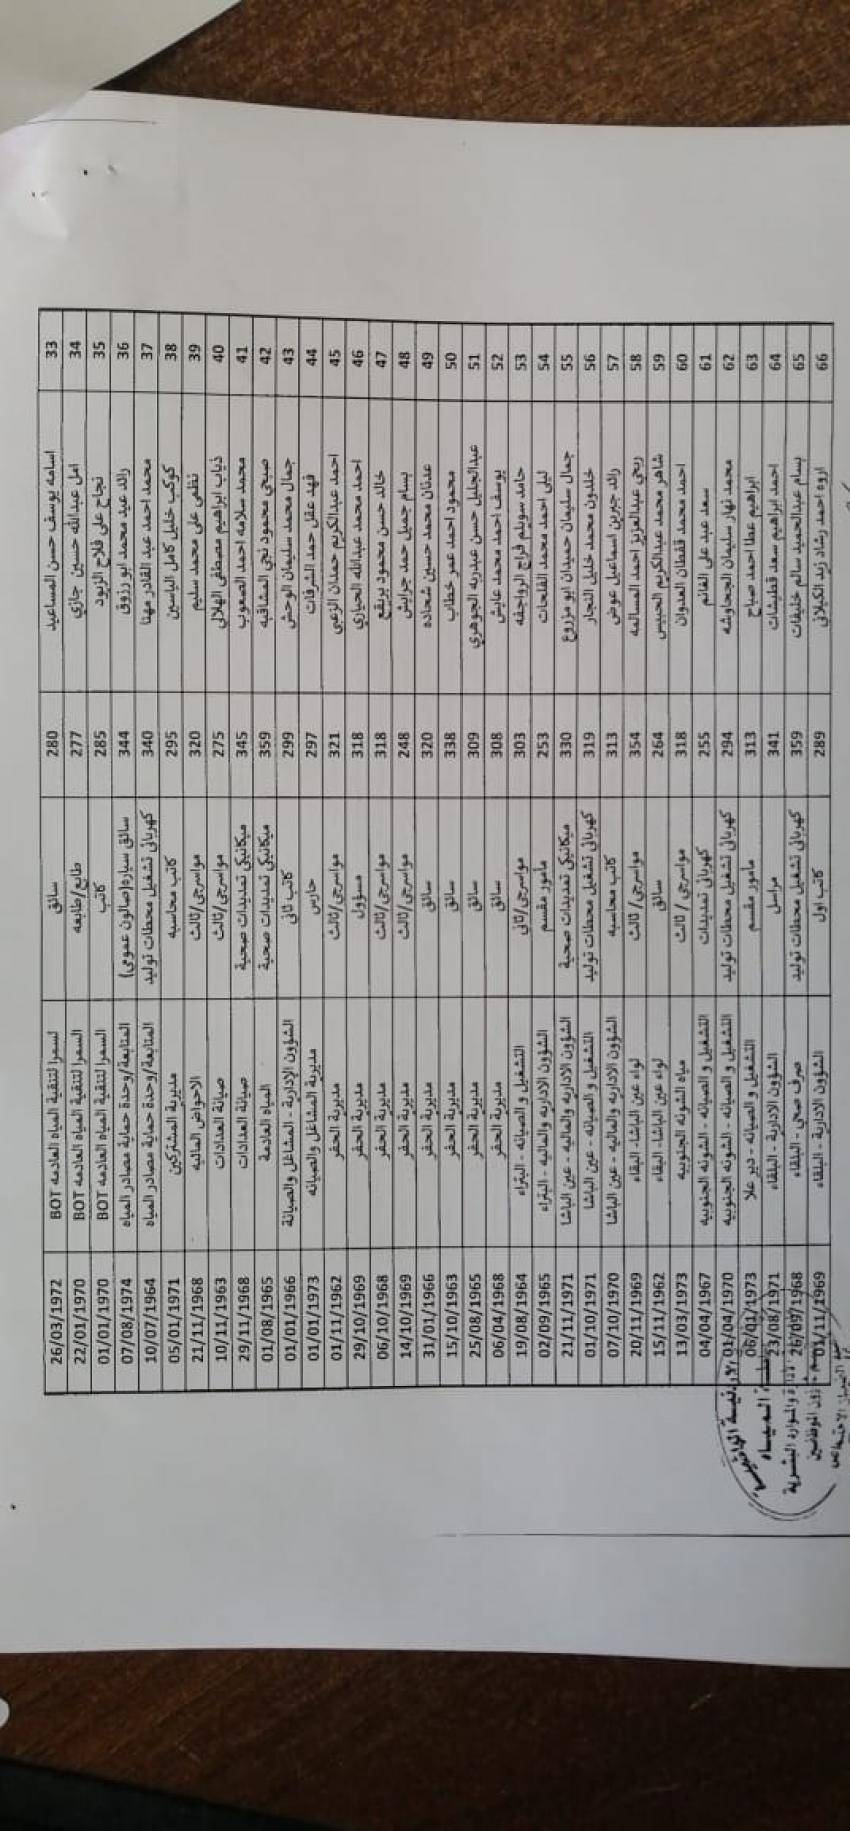 33 اسامه يوسف حسن المساعيد 280 سائق لسمرا لتنقية المياه العادمه BOT 26/03/1972
34 امل عبدالله حسين جازي 277 طابع/طابعه السمرا لتنقية المياه العادمه BOT 22/01/1970
35 نجاح علي فلاح الزيود 285 كاتب السمرا لتنقية المياه العادمه BOT 01/01/1970
36 رائد عيد محمد ابو رزوق 344 سائق سيارة(صالون عمومي) المتابعة/وحدة حماية مصادر المياه 07/08/1974
37 محمد احمد عبد القادر مهنا 340 كهربائي تشغيل محطات توليد المتابعة/وحدة حماية مصادر المياه 10/07/1964
38 كوكب خليل كامل الياسين 295 كاتب محاسبه مديرية المشتركين 05/01/1971
39 نظمي علي محمد سليم 320 مواسرجي/ثالث الاحواض المائيه 21/11/1968
40 ذياب ابراهيم مصطفى الهلالي 275 مواسرجي/ثالث صيانة العدادات 10/11/1963
41 محمد سلامه احمد الصعوب 345 ميكانيكي تمديدات صحية صيانة العدادات 29/11/1968
42 صبحي محمود نجي المشاقبه 359 ميكانيكي تمديدات صحية المياه العادمة 01/08/1965
43 جمال محمد سليمان الوحش 299 كاتب ثاني الشؤون الإدارية - المشاغل والصيانة 01/01/1966
44 فهد عقل حمد الشرفات 297 حارس مديرية المشاغل والصيانه 01/01/1973
45 احمد عبدالكريم حمدان الزعبي 321 مواسرجي/ثالث مديرية الحفر 01/11/1962
46 احمد محمد عبدالله الحياري 318 مسؤول مديرية الحفر 29/10/1969
47 خالد حسن محمود برقع 318 مواسرجي/ثالث مديرية الحفر 06/10/1968
48 بسام جميل حمد جرايش 248 مواسرجي/ثالث مديرية الحفر 14/10/1969
49 عدنان محمد حسين شحاده 320 سائق مديرية الحفر 31/01/1966
50 محمود احمد عمر خطاب 338 سائق مديرية الحفر 15/10/1963
51 عبدالجليل حسن عبدربه الجوهري 309 سائق مديرية الحفر 25/08/1965
52 يوسف احمد محمد عايش 308 سائق مديرية الحفر 06/04/1968
53 حامد سويلم فراج الرواجفه 303 مواسرجي/ثاني التشغيل و الصيانه - البتراء 19/08/1964
54 ليلى احمد محمد الفلاحات 253 مامور مقسم الشؤون الاداريه والماليه - البتراء 02/09/1965
55 جمال سليمان حميدان ابو مزروع 330 ميكانيكي تمديدات صحية الشؤون الاداريه والماليه - عين الباشا 21/11/1971
56 خلدون محمد خليل النجار 319 كهربائي تشغيل محطات توليد التشغيل و الصيانه - عين الباشا 01/10/1971
57 رائد جبرين اسماعيل عوض 313 كاتب محاسبه الشؤون الاداريه والماليه - عين الباشا 07/10/1970
58 ربحي عبدالعزيز احمد المسالمه 354 مواسرجي/ ثالث لواء عين الباشا- البقاء 20/11/1969
59 شاهر محمد عبدالكريم الحبيس 264 سائق لواء عين الباشا- البقاء 15/11/1962
60 احمد محمد قفطان العدوان 318 مواسرجي / ثالث مياه الشونه الجنوبيه 13/03/1973
61 سعد عيد علي الغانم 255 كهربائي تمديدات التشغيل و الصيانه - الشونه الجنوبيه 04/04/1967
62 محمد نهار سليمان الجحاوشه 294 كهربائي تشغيل محطات توليد التشغيل و الصيانه - الشونه الجنوبيه 01/04/1970
63 ابراهيم عطا احمد صباح 313 مامور مقسم التشغيل و الصيانه - دير علا 06/01/1973
64 احمد ابراهيم سعد قطيشات 341 مراسل الشؤون الادارية - البلقاء 23/08/1971
65 بسام عبدالحميد سالم خليفات 359 كهربائي تشغيل محطات توليد صرف صحي - البلقاء 26/09/1968
66 اروه احمد رشاد زيد الكيلاني 289 كاتب اول الشؤون الادارية - البلقاء 01/11/1969